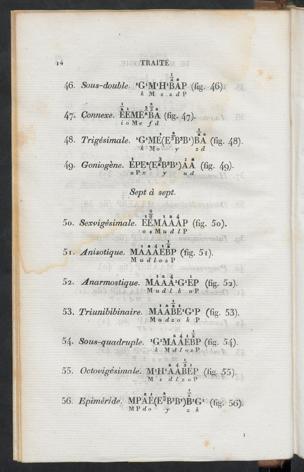 14 TRAITÉ
46. Sous-double. 'G'M'H'BAP (fig. 46)
k M s z d P
47. Connexe. EEME'BA (fig. 47).
i o M e f d
48. Trigésimale. 'G'ME(E'B'B')BA (fig. 48).
k M o y z d
49. Goniogène. EPE'(E'B'B')AA (fig. 49).
o P x y u d
Sept à sept.
50. Sexvigésimale. EEMAAAP (fig. 50).
51. Anisotique. MAAAEBP (fig. 51).
M u d l o z P
52. Anarmostique. MAAA'G'EP (fig. 52).
M u d l k o P
53. Triunibibinaire. MAABE'G'P (fig. 53).
M u d z o k P
54. Sous-quadruple. 'G'MAAEBP (fig. 54).
k M d l o z P
55. Octovigésimale. M'H'AAEBP (fig. 55).
M s d l z o P
56. Epiméride. MPAE(E'B'B')B'G' (fig. 56).
M P d o y z k
1